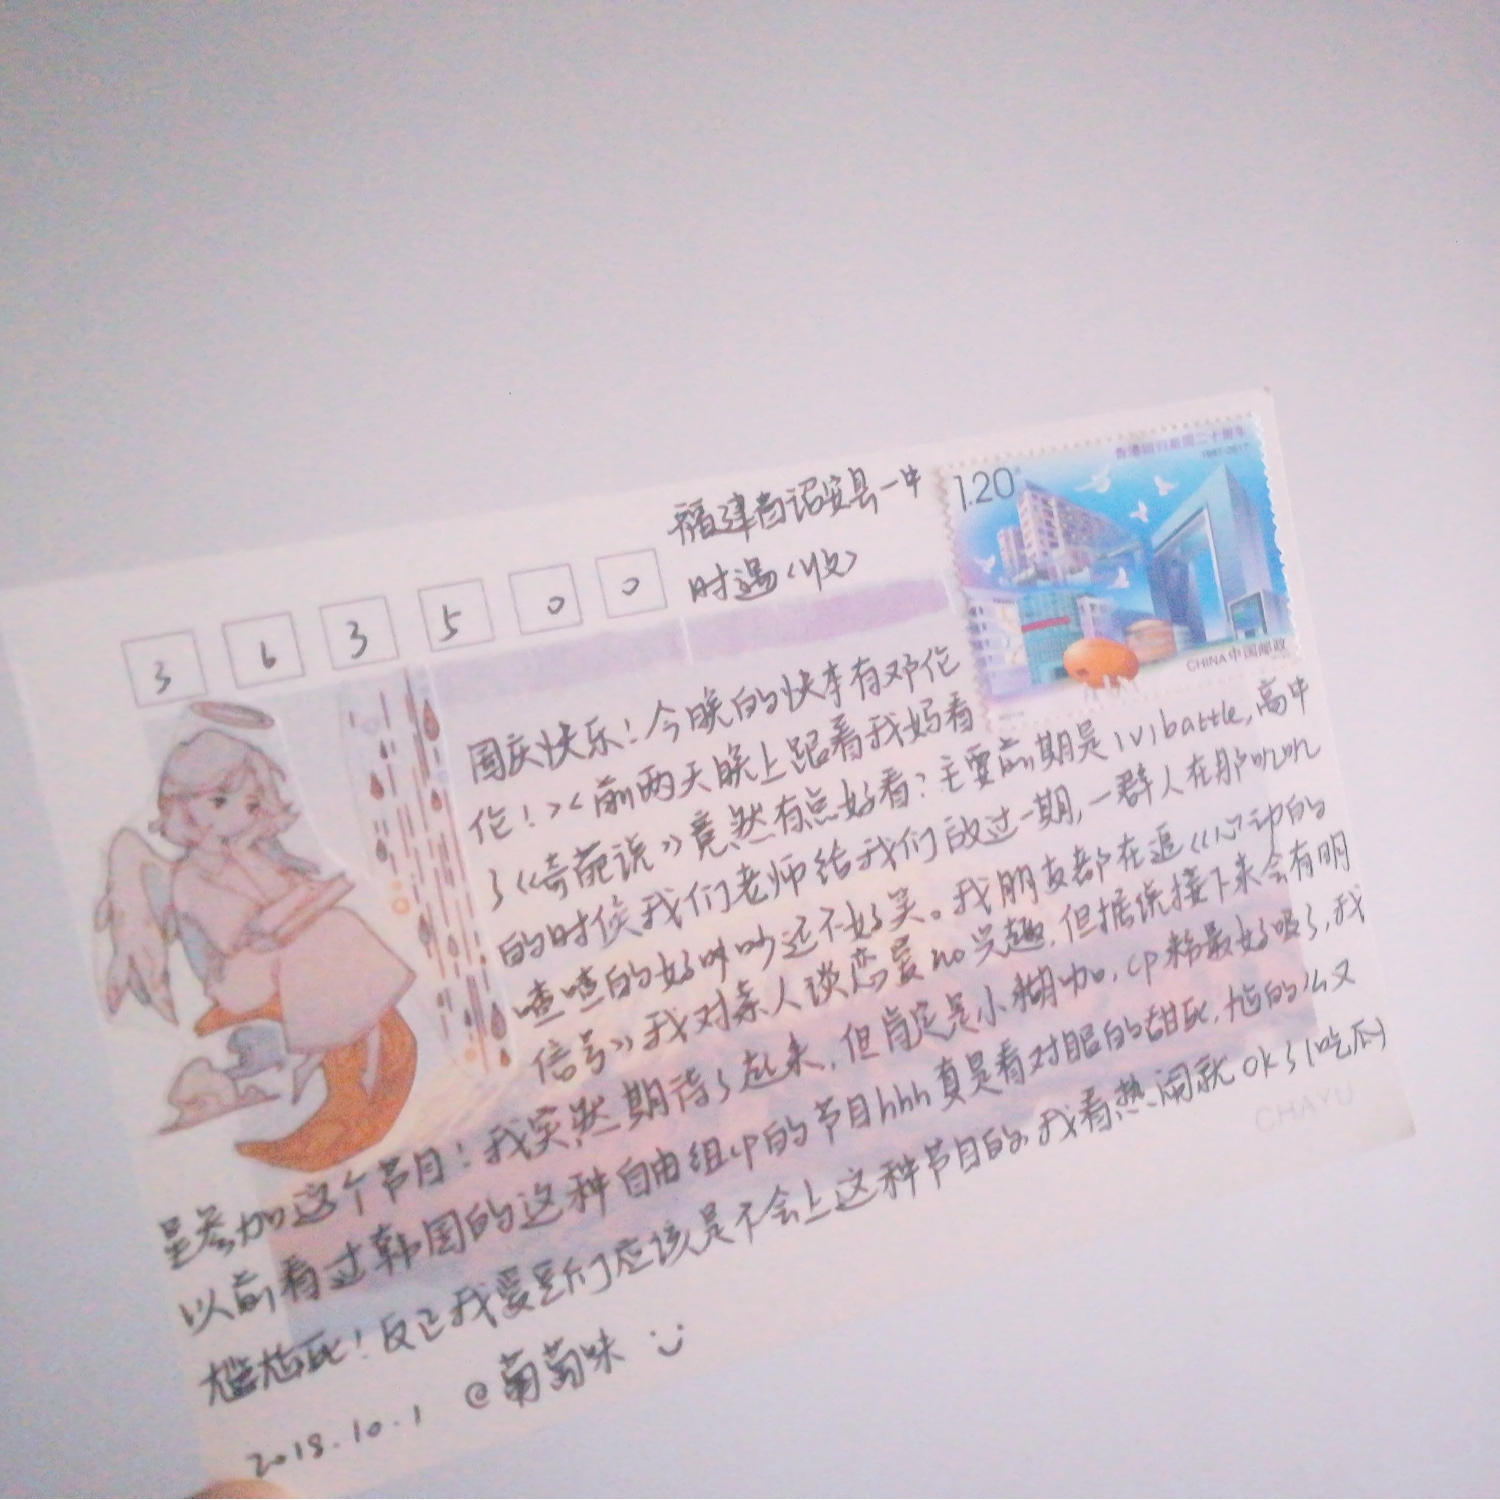 福建省诏安县一中
时遇(收)
363500
1.20
香港回归祖国二十周年
1997-2017
CHINA中国邮政
国庆快乐!今晚的快本有邓伦
伦!><前两天晚上跟着我妈看
了《奇葩说》竟然有点好看?主要前期是1V1battle,高中
的时候我们老师给我们放过一期,一群人在那叽叽
喳喳的好吵吵还不好笑。我朋友都在追《心动的
信号》我对素人谈恋爱no兴趣,但据说接下来会有明
星参加这个节目!我突然期待了起来,但肯定是小糊咖,cp粉最好嗑了,我
以前看过韩国的这种自由组cp的节目hhh真是看对眼的甜死,尬的么又
尴尬死!反正我爱豆们应该是不会上这种节目的,我看热闹就OK了(吃瓜)
2018.10.1 @葡萄味
CHAYU